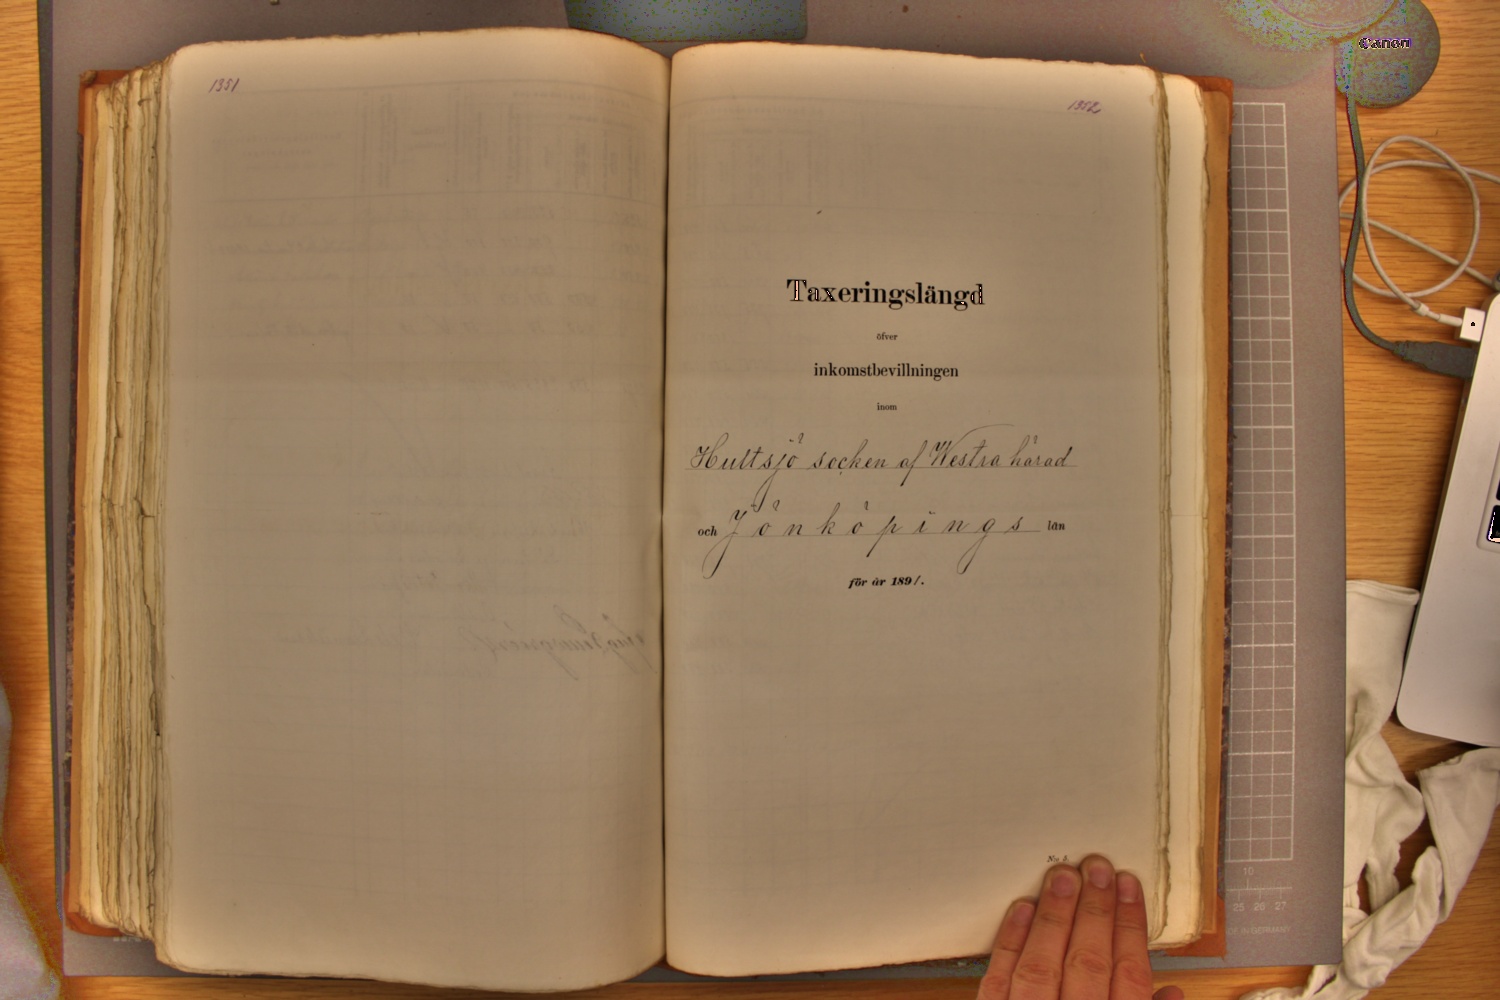 1351
1352
Taxeringslängd
öfver
inkomstbevillningen
inom
Hultsjö socken af Westra härad
och Jönköpings län
för år 1891.
Canon
10
25 26 27